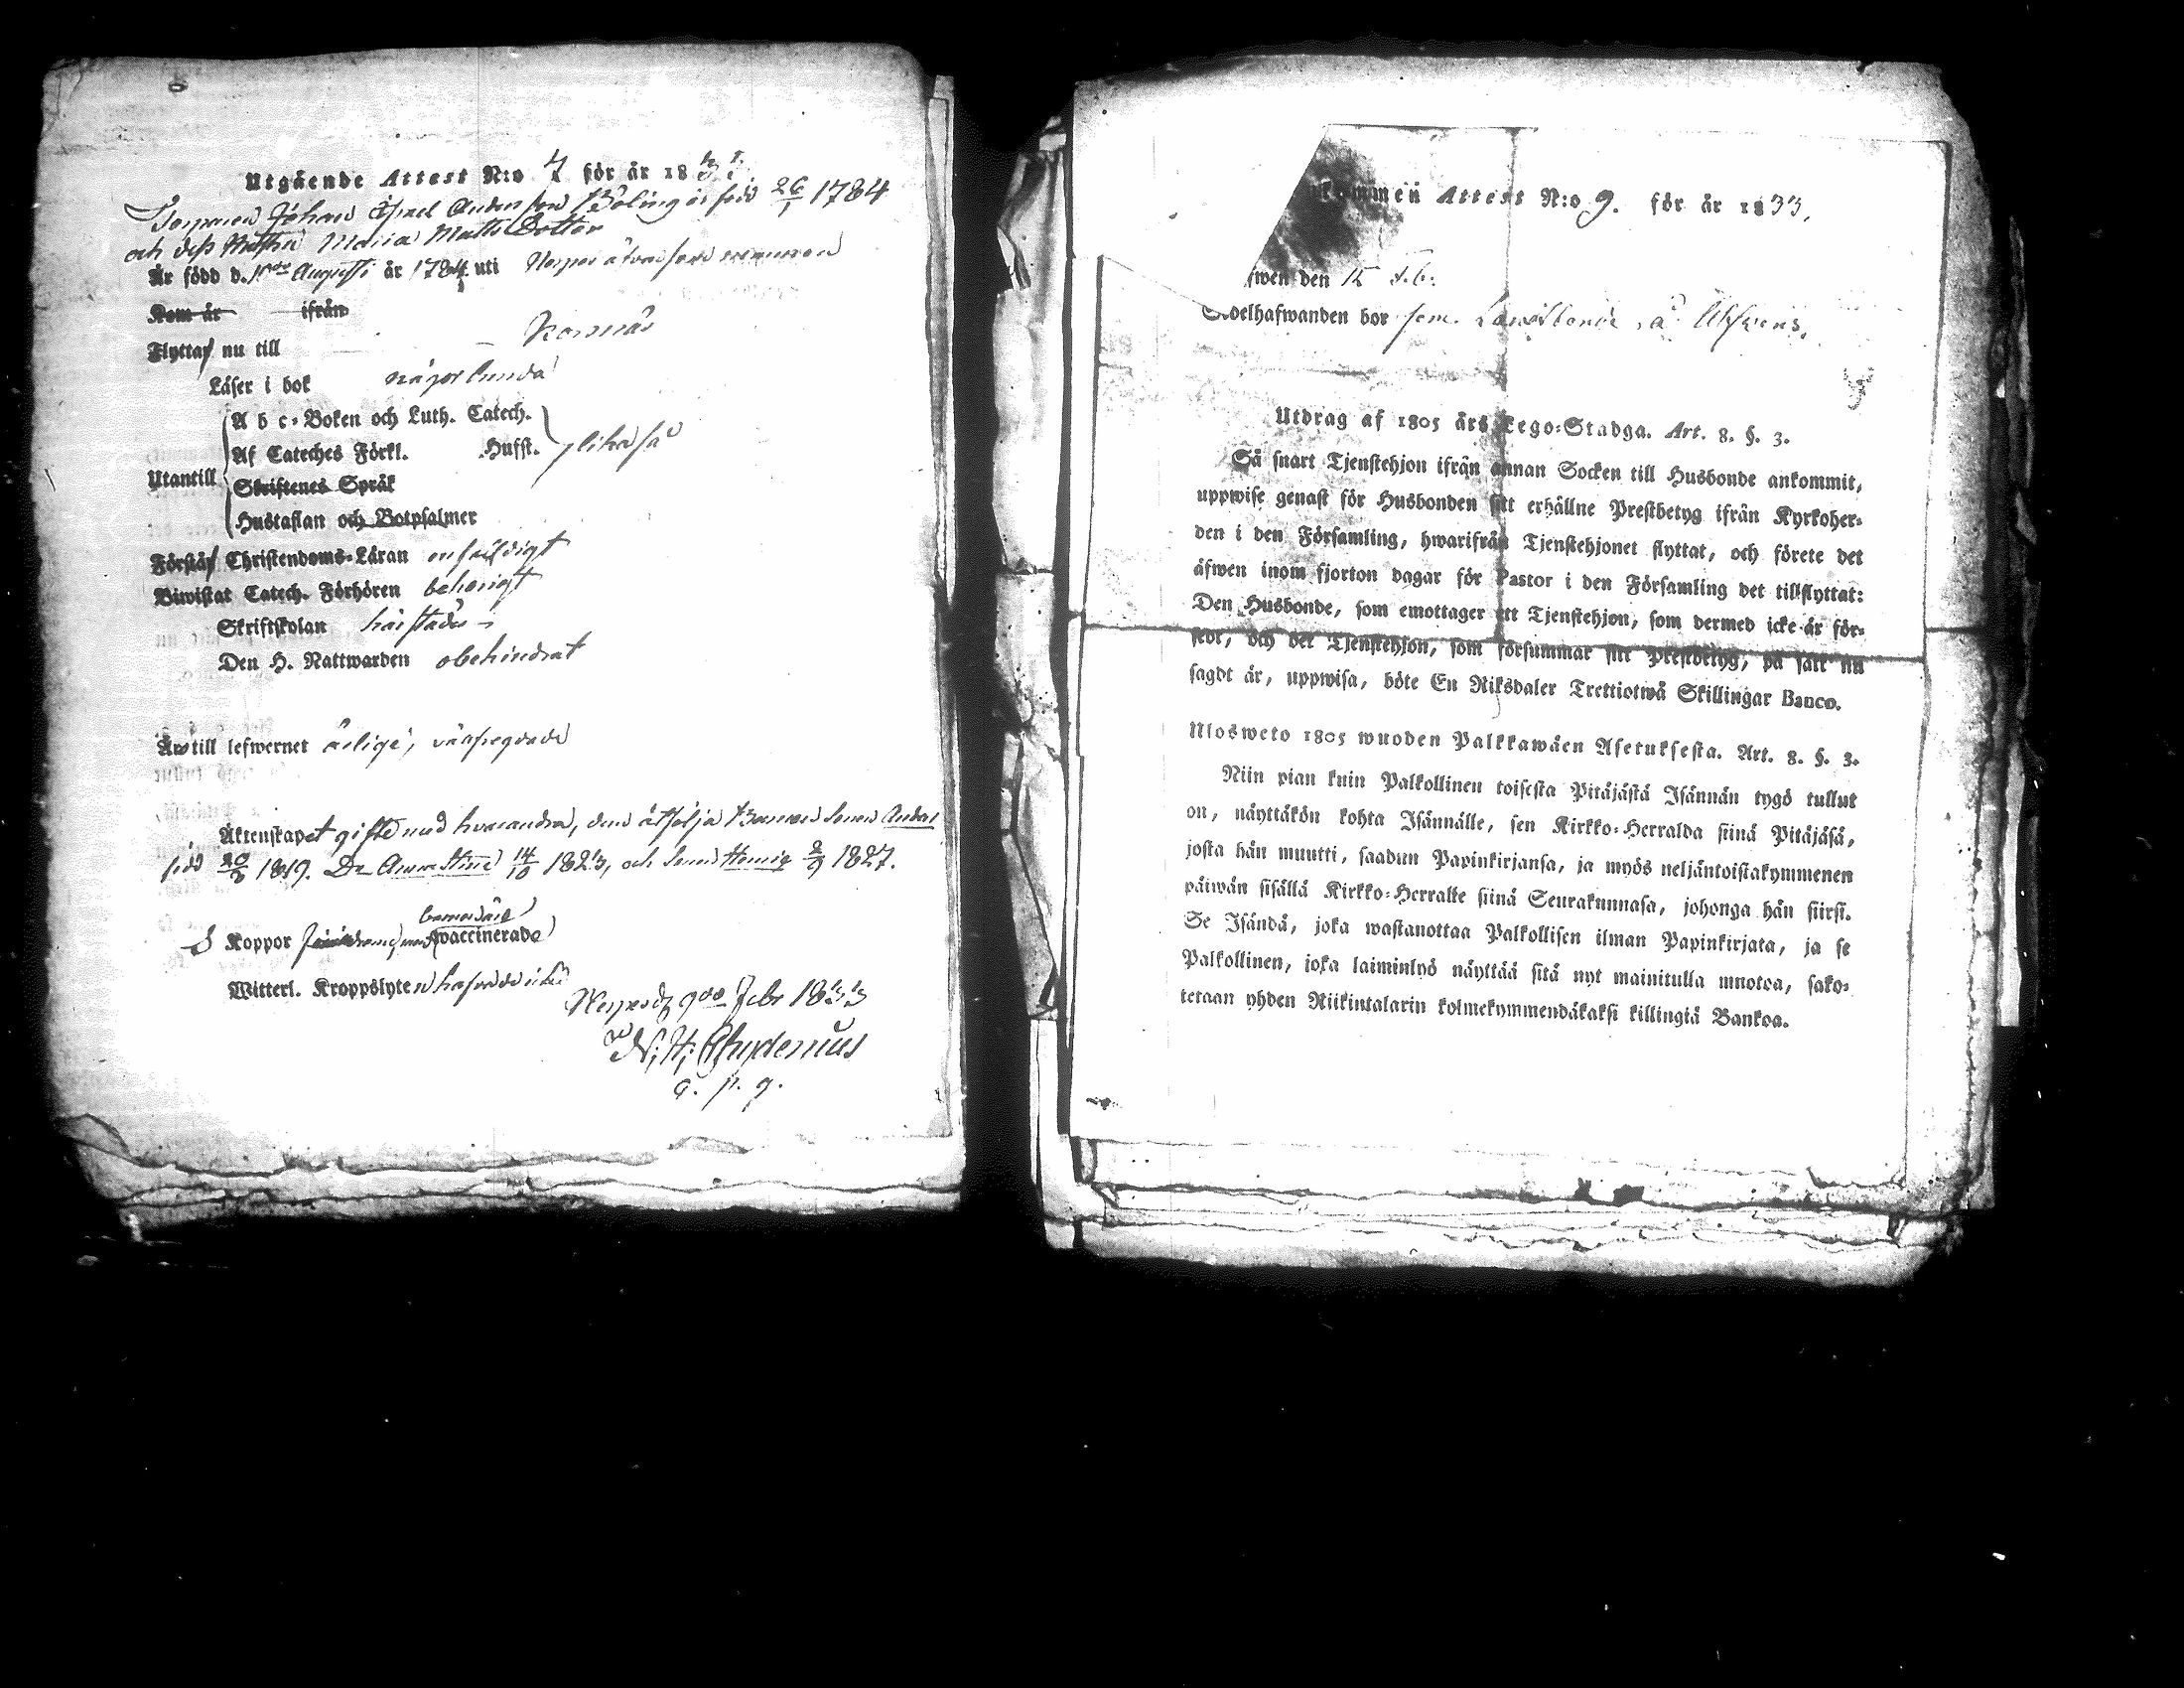 Utgående Attest N:o 7 för år 1833.
Torparen Johan Israel Andersson Böling är född 26/1 1784
och dess Hustru Maria Matts Dotter
Är född d. Augusti år 1784 uti Nerpes
Kom år ifrån
Flyttar nu till Korsnäs
Läser i bok någorlunda
A b c-Boken och Luth. Catech.
Af Cateches Förkl. Husst. likaså
Utantill
Skriftenes Språk
Hustaflan och Botpsalmer
Förstår Christendoms-Läran enfaldigt
Biwistat Catech. Förhören behörigt
Skriftskolan härstädes
Den H. Nattwarden obehindrat
Är till lefwernet ärlige, välfregdade
Äktenskapet gifte med hvarandra, dem åtfölja Barnen Sonen Anders
född 1819. Dr Anna Stina 14/10 1823, och Sonen Henrig 2/9 1827.
Koppor barnen äro vaccinerade
Witterl. Kroppslyten hafva de icke
Nerpes d. 9de Febr 1833
N. H. Chydenius
a. p. g.
kommen Attest N:o 9. för år 1833.
swen den 15 Feb.
delhafwanden bor som Landbonde å
Utdrag af 1805 års Lego-Stadga. Art. 8. §. 3.
Så snart Tjenstehjon ifrån annan Socken till Husbonde ankommit,
uppwise genast för Husbonden sitt erhållne Prestbetyg ifrån Kyrkoher-
den i den Församling, hwarifrån Tjenstehjonet flyttat, och förete det
äfwen inom fjorton dagar för Pastor i den Församling det tillflyttat:
Den Husbonde, som emottager ett Tjenstehjon, som dermed icke är för-
sedt, och det Tjenstehjon, som försummar sitt Prestbetyg, på sätt nu
sagdt är, uppwisa, böte En Riksdaler Trettiotwå Skillingar Banco.
Ulosweto 1805 wuoden Palkkawäen Asetuksesta. Art. 8. §. 3.
Niin pian kuin Palkollinen toisesta Pitäjästä Isännän tygö tullut
on, näyttäkön kohta Isännälle, sen Kirkko-Herralda siinä Pitäjäsä,
josta hän muutti, saadun Papinkirjansa, ja myös neljäntoistakymmenen
päiwän sisällä Kirkko-Herralle siinä Seurakunnasa, johonga hän siirsi.
Se Isändä, joka wastanottaa Palkollisen ilman Papinkirjata, ja se
Palkollinen, joka laiminlyö näyttää sitä nyt mainitulla muotoa, sako-
tetaan yhden Riikintalarin kolmekymmendäkaksi killingiä Bankoa.